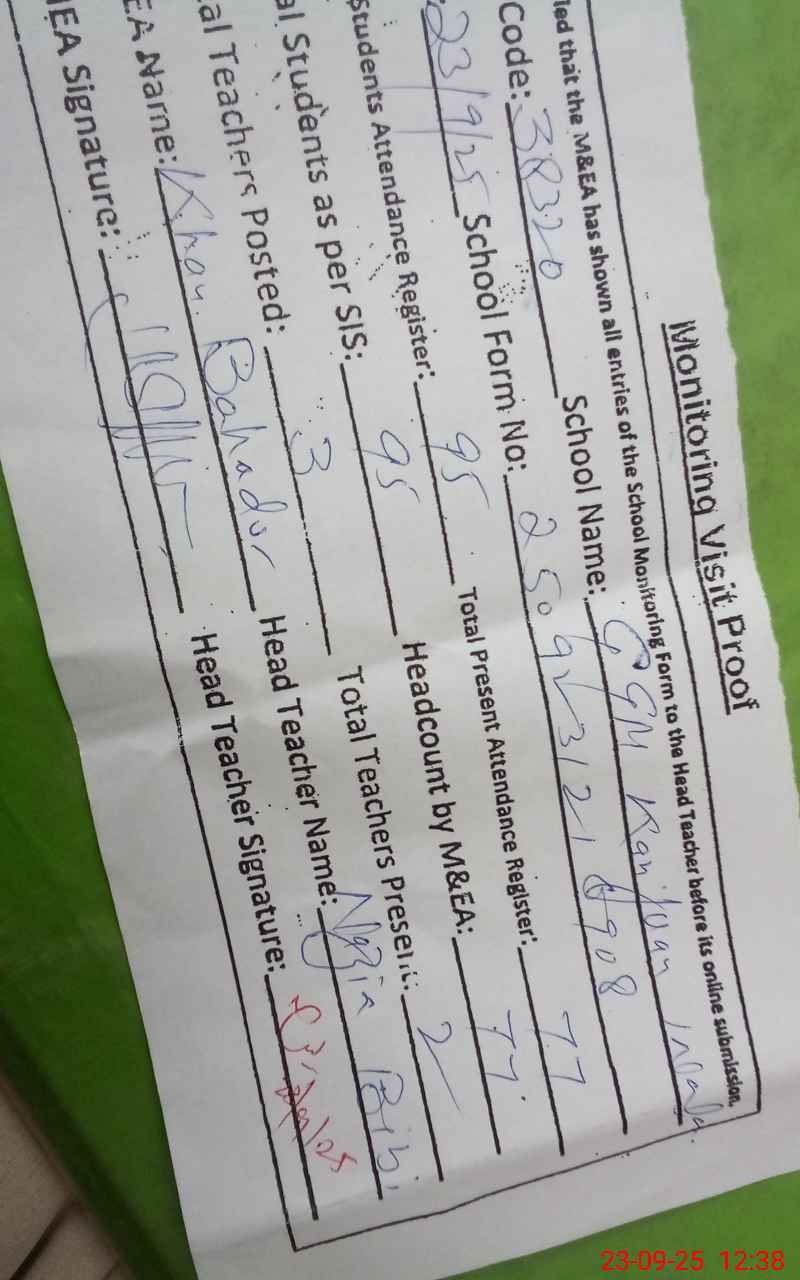 Monitoring Visit Proof
led that the M&EA has shown all entries of the School Monitoring Form to the Head Teacher before its online submission.
Code: 38320 School Name: GGM
23/9/25 School Form No:
Students Attendance Register: 95 Total Present Attendance Register: 77
al Students as per SIS: 95 Headcount by M&EA: 77
al Teachers Posted: 3 Total Teachers Present: 2
EA Name: Khan Bahador Head Teacher Name: Nazia Bibi
EA Signature: Head Teacher Signature:
23-09-25 12:38